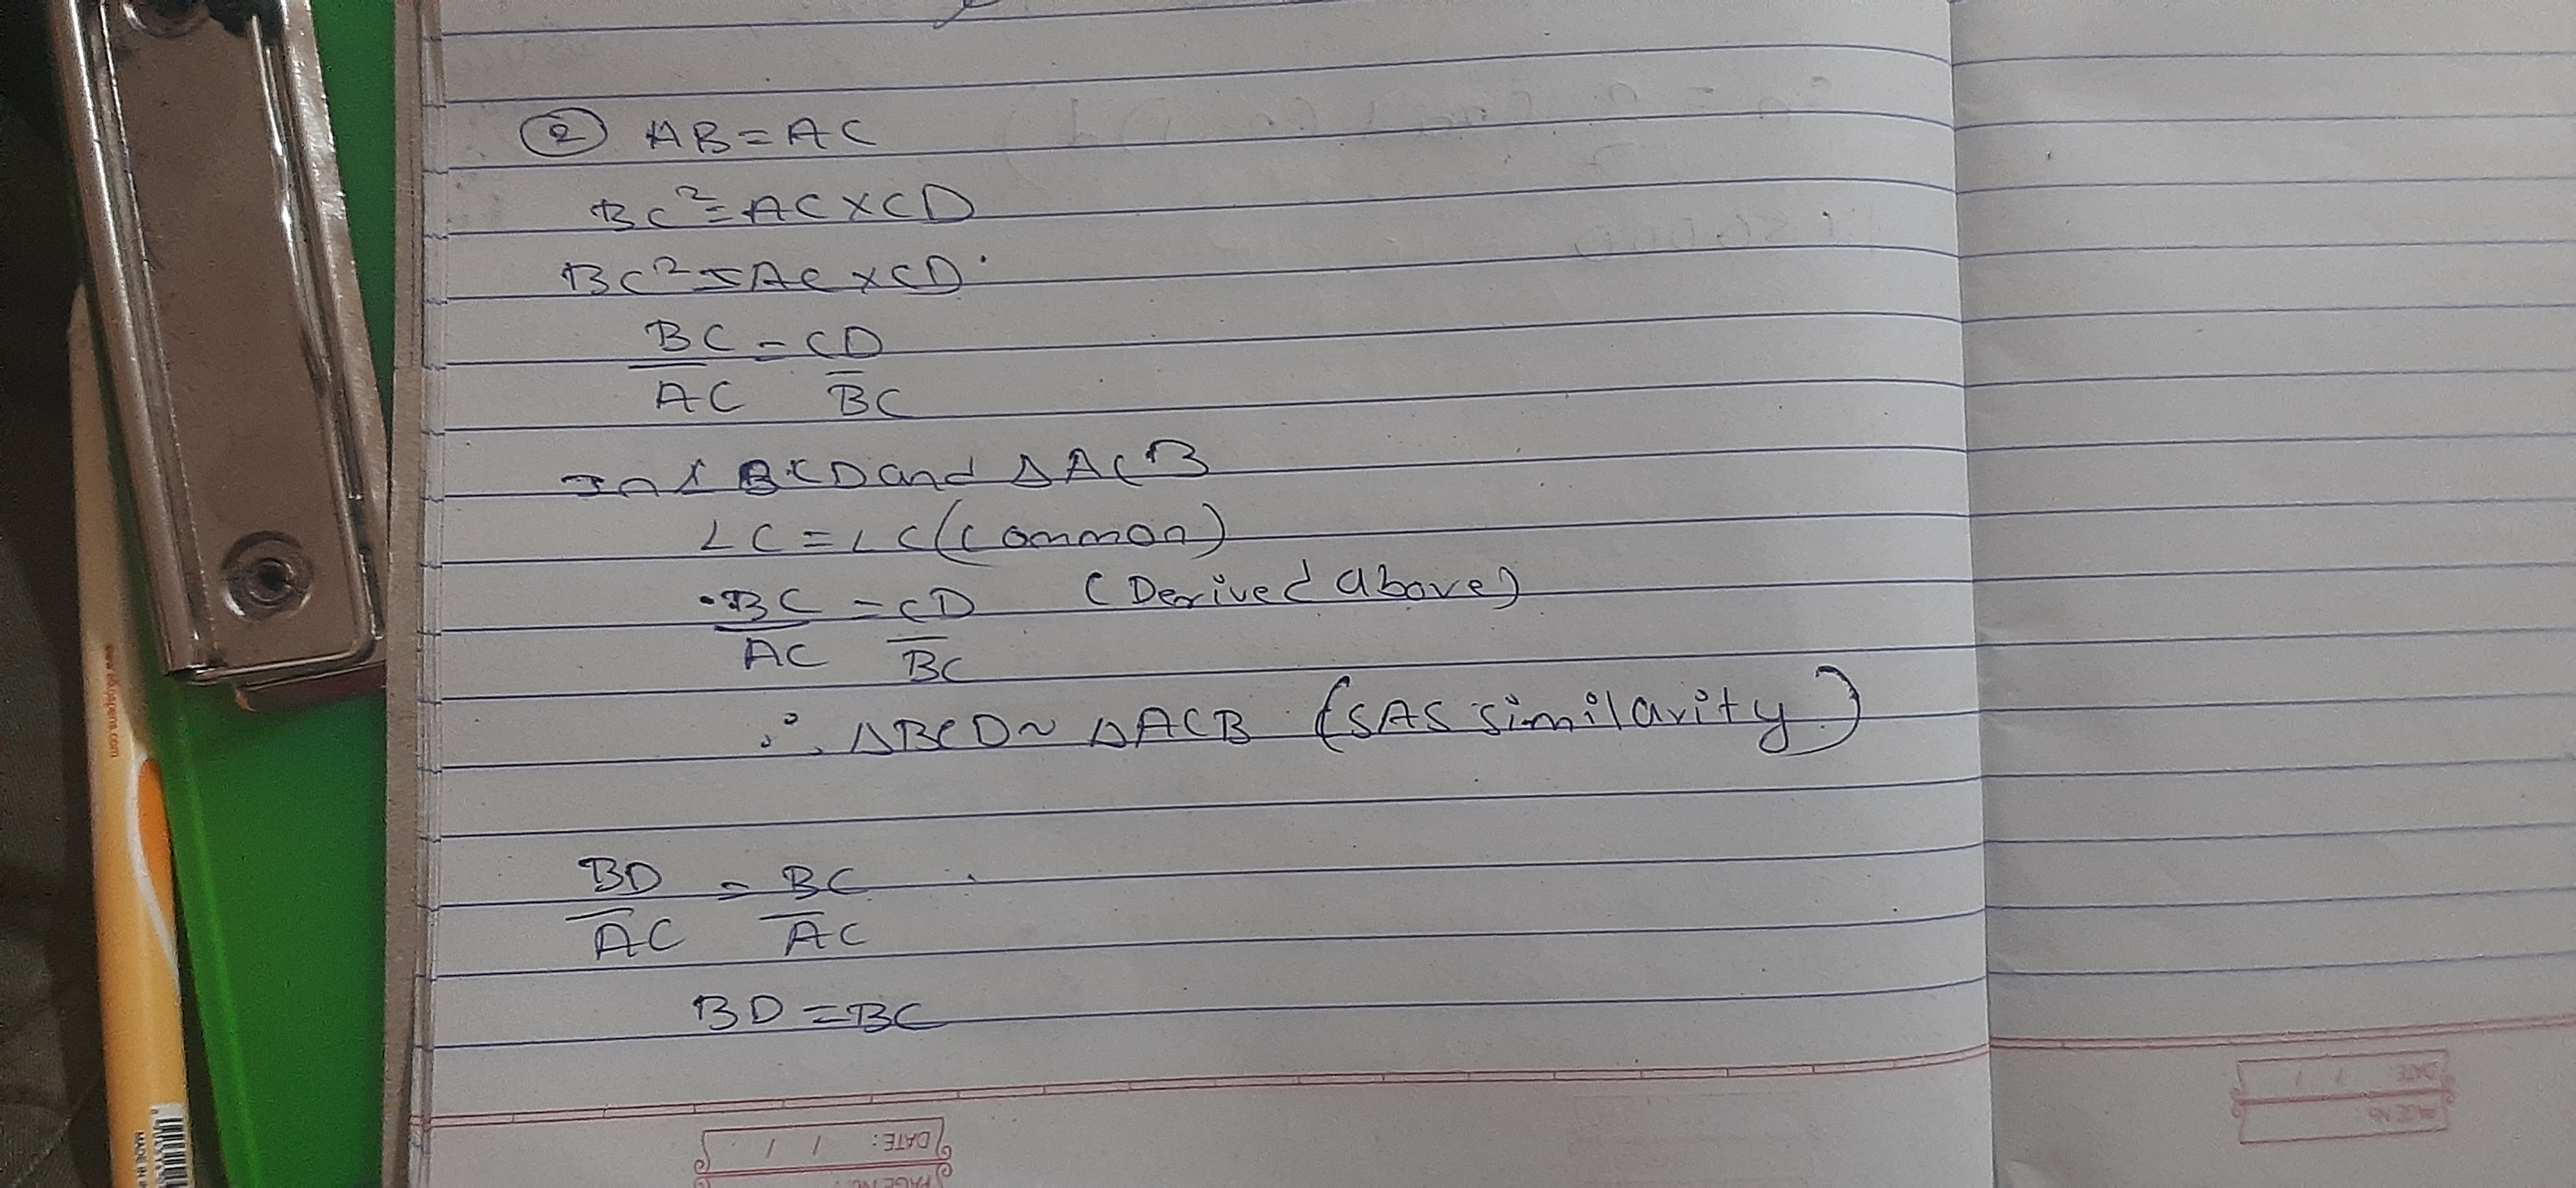 ② AB = AC
BC² = AC × CD
BC² = AC × CD
BC/AC = CD/BC
In Δ BCD and Δ ACB
∠C = ∠C (Common)
BC/AC = CD/BC (Derived above)
∴ ΔBCD ~ ΔACB (SAS similarity)
BD/AC = BC/AC
BD = BC
DATE: / /
PAGE NO.:
DATE: / /
PAGE No.
MADE IN